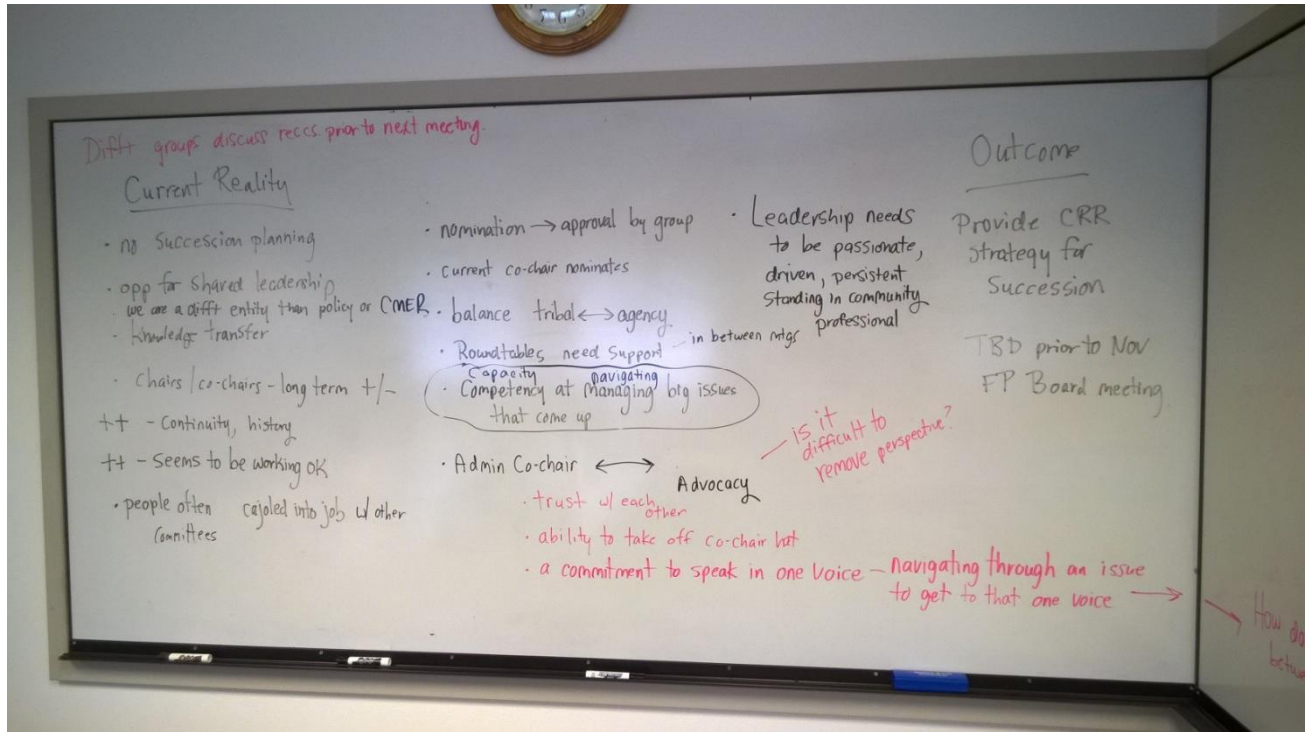 Difft groups discuss reccs. prior to next meeting.
Current Reality
· no Succescion planning
· opp for Shared leadership
we are a difft entity than policy or CMER
· knowledge transfer
· Chairs / co-chairs - long term +/-
++ - Continuity, history
++ - Seems to be working OK
· people often cajoled into job w/ other
Committees
· nomination → approval by group
· current co-chair nominates
· balance tribal ↔ agency
· Roundtables need Support - in between mtgs
Capacity navigating
· Competency at managing big issues
that come up
· Admin Co-chair ↔ Advocacy
- is it
difficult to
remove perspective?
· trust w/ each
other
· ability to take off co-chair hat
· a commitment to speak in one voice - navigating through an issue
to get to that one voice →
· Leadership needs
to be passionate,
driven, persistent
Standing in community
professional
Outcome
Provide CRR
Strategy for
Succession
TBD prior to Nov
FP Board meeting
→ How